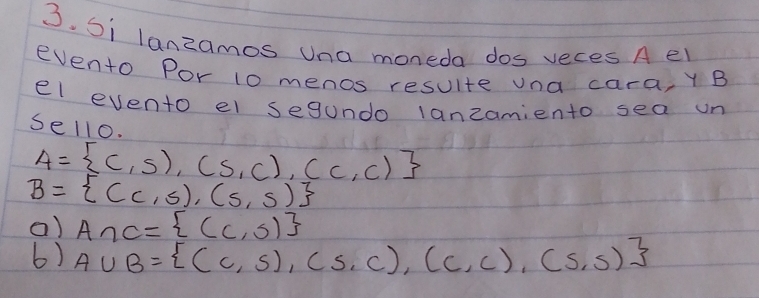 3. Si lanzamos una moneda dos veces A el
evento Por lo menos resulte una cara, Y B
el evento el segundo lanzamiento sea un
sello.
A = {C,S), (S,C), (C,C)}
B = {(C,S), (S,S)}
a) A∩C= {(C,S)}
b) A∪B= {(C,S), (S,C), (C,C), (S,S)}